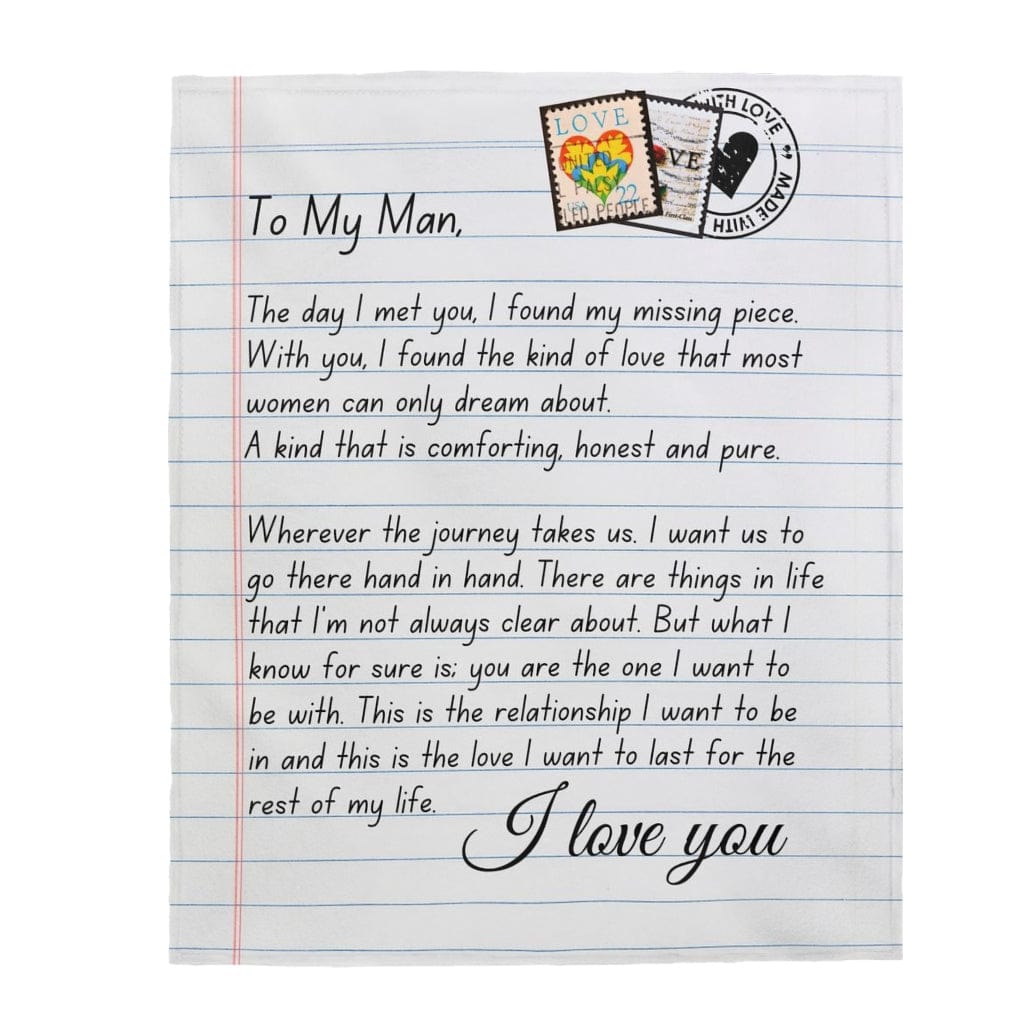 WITH LOVE " MADE WITH
LOVE
USA 22
VE
First-Class
To My Man,
The day I met you, I found my missing piece.
With you, I found the kind of love that most
women can only dream about.
A kind that is comforting, honest and pure.
Wherever the journey takes us. I want us to
go there hand in hand. There are things in life
that I'm not always clear about. But what I
know for sure is; you are the one I want to
be with. This is the relationship I want to be
in and this is the love I want to last for the
rest of my life.
I love you